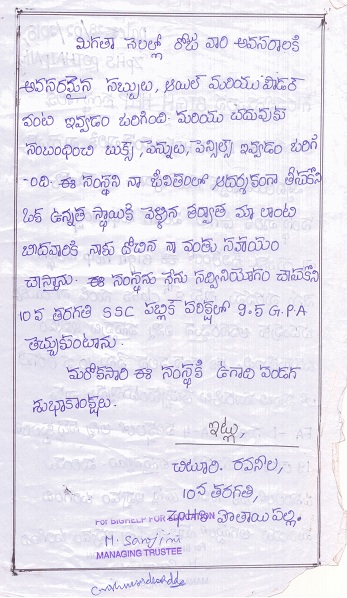 మిగతా నెలల్లో రోజు వారి అవసరాలకి
అవసరమైన సబ్బులు, ఆయిల్ మరియు పౌడర్
వంటి ఇవ్వడం జరిగింది. మరియు చదువుకు
సంబంధించి బుక్స్, పెన్నులు, పెన్సిల్స్ ఇవ్వడం జరిగి
-ంది. ఈ సంస్థని నా జీవితంలో ఆదర్శకంగా తీసుకొని
ఒక ఉన్నత స్థాయికి వెళ్ళిన తర్వాత మా లాంటి
బీదవారికి నాకు తోచిన నా వంతు సహాయం
చేస్తాను. ఈ సంస్థను నేను సద్వినియోగం చేసుకొని
10వ తరగతి SSC పబ్లిక్ పరీక్షలో 9.5 G.P.A
తెచ్చుకుంటాను.
మరొకసారి ఈ సంస్థకి ఉగాది పండగ
శుభాకాంక్షలు.
ఇట్లు,
రవనీల,
10వ తరగతి,
For BIGHELP FOR పల్లి.
M. Sarojini
MANAGING TRUSTEE